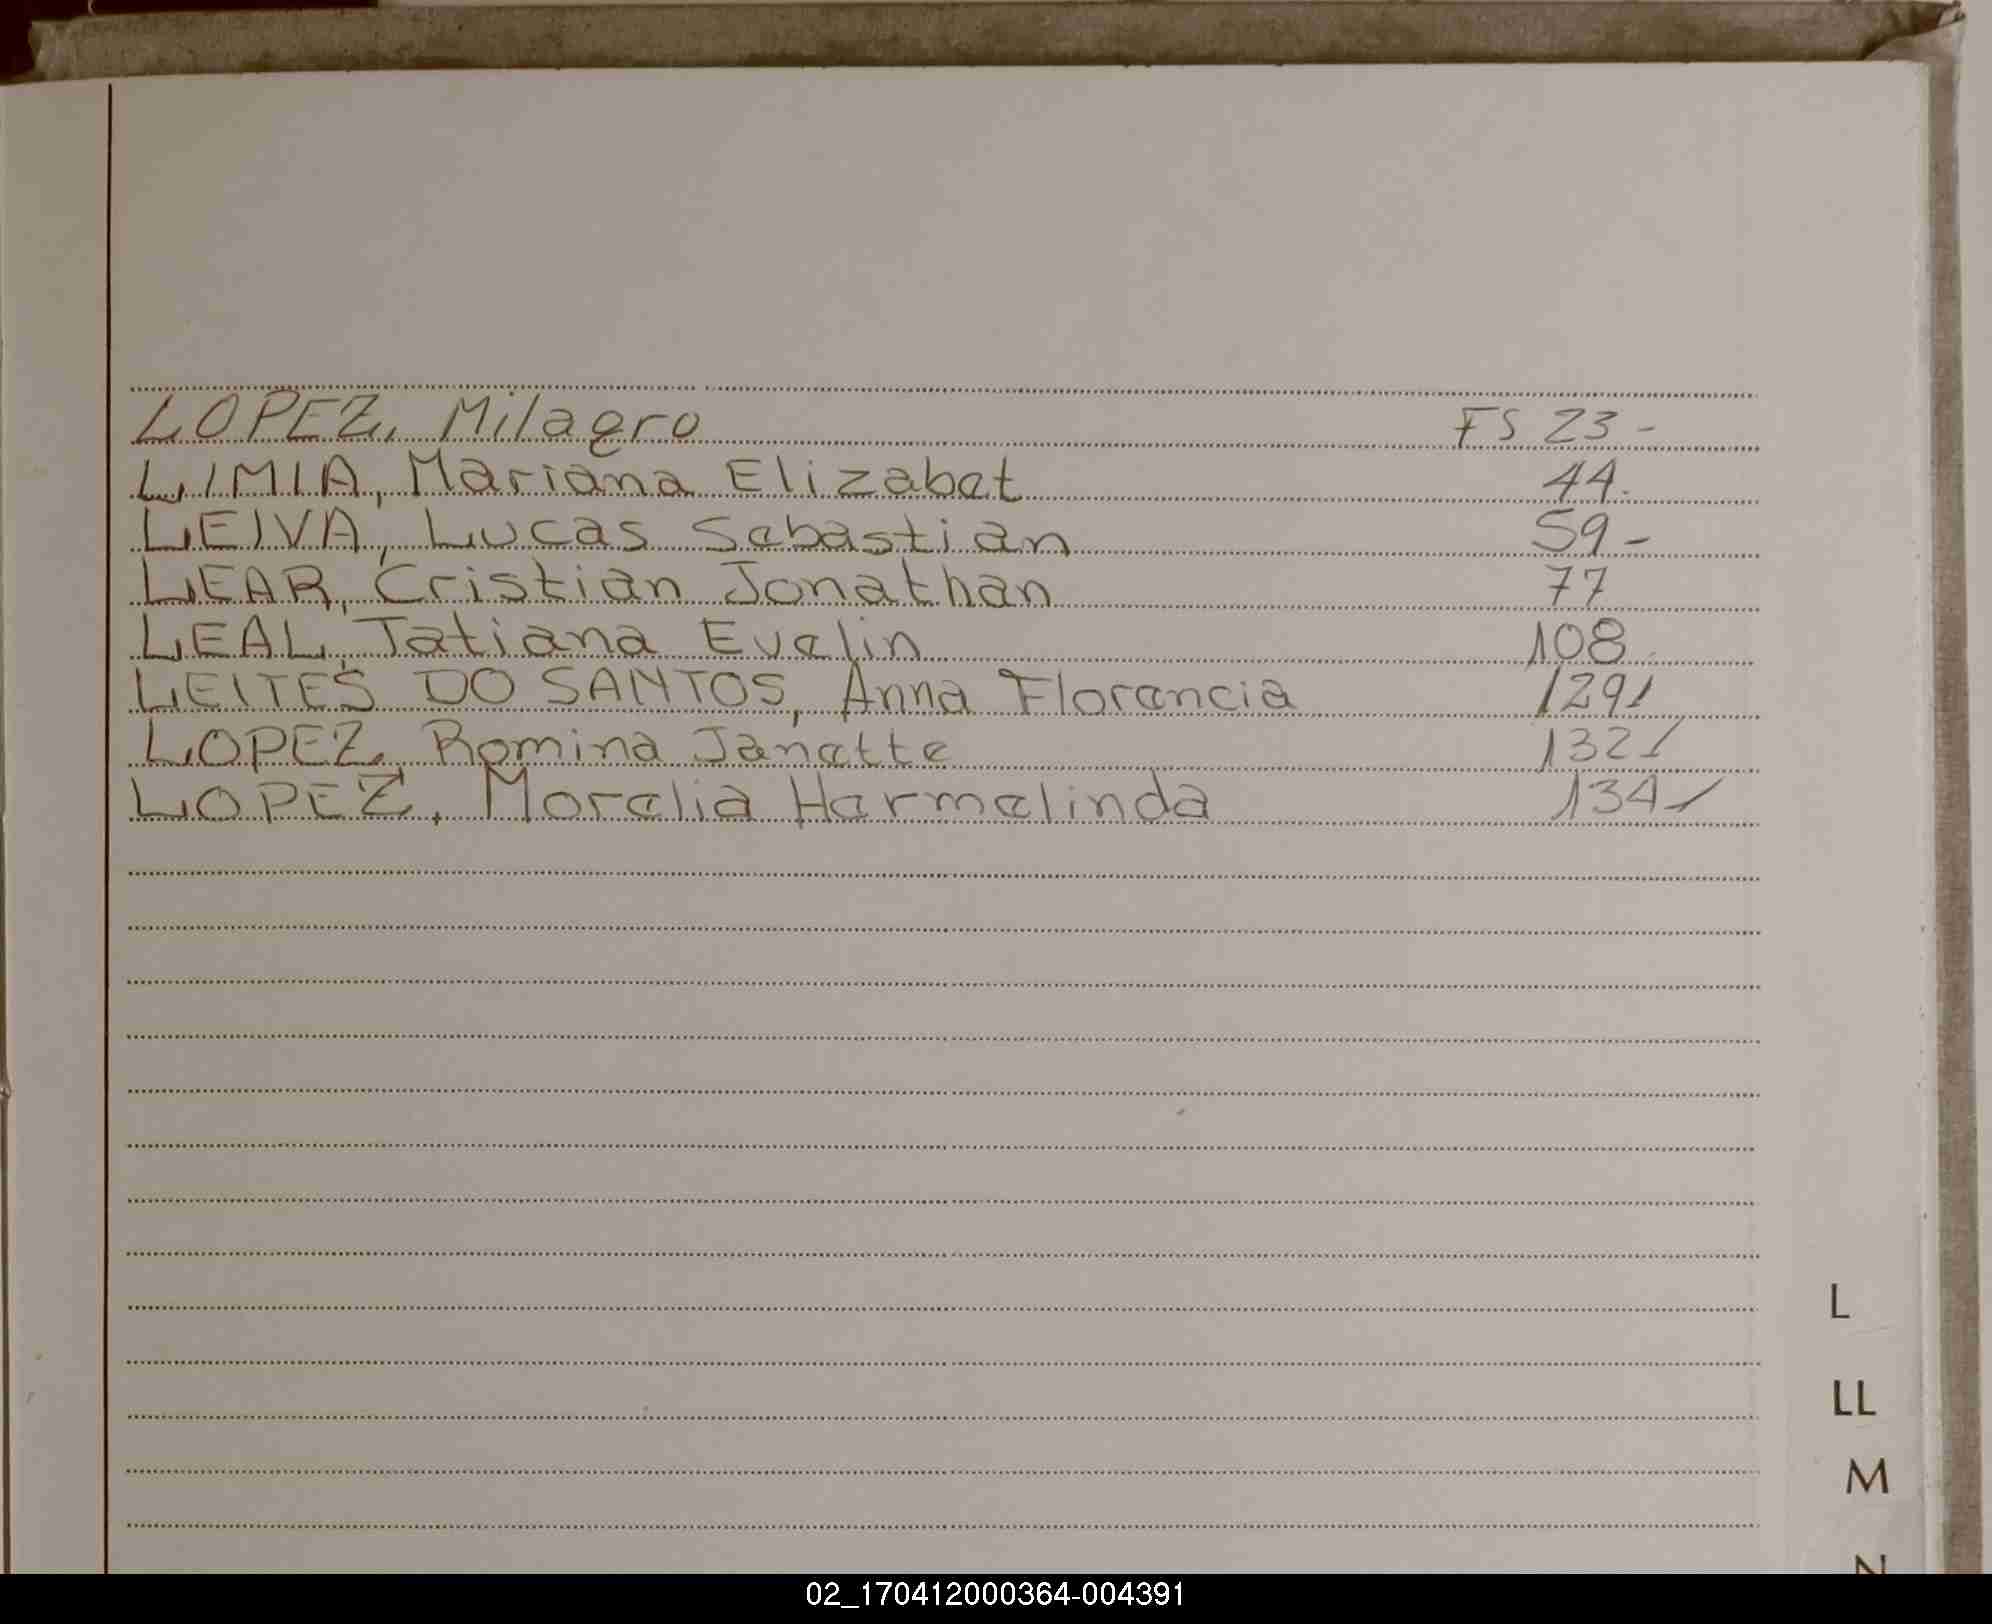 LOPEZ, Milagro FS 23-
LIMIA, Mariana Elizabet 44.
LEIVA, Lucas Sebastian 59-
LEAR, Cristian Jonathan 77
LEAL, Tatiana Evelin 108
LEITES DO SANTOS, Anna Florencia 129/
LOPEZ, Romina Janette 132/
LOPEZ, Morelia Hermelinda 134/
L
LL
M
N
02_170412000364-004391